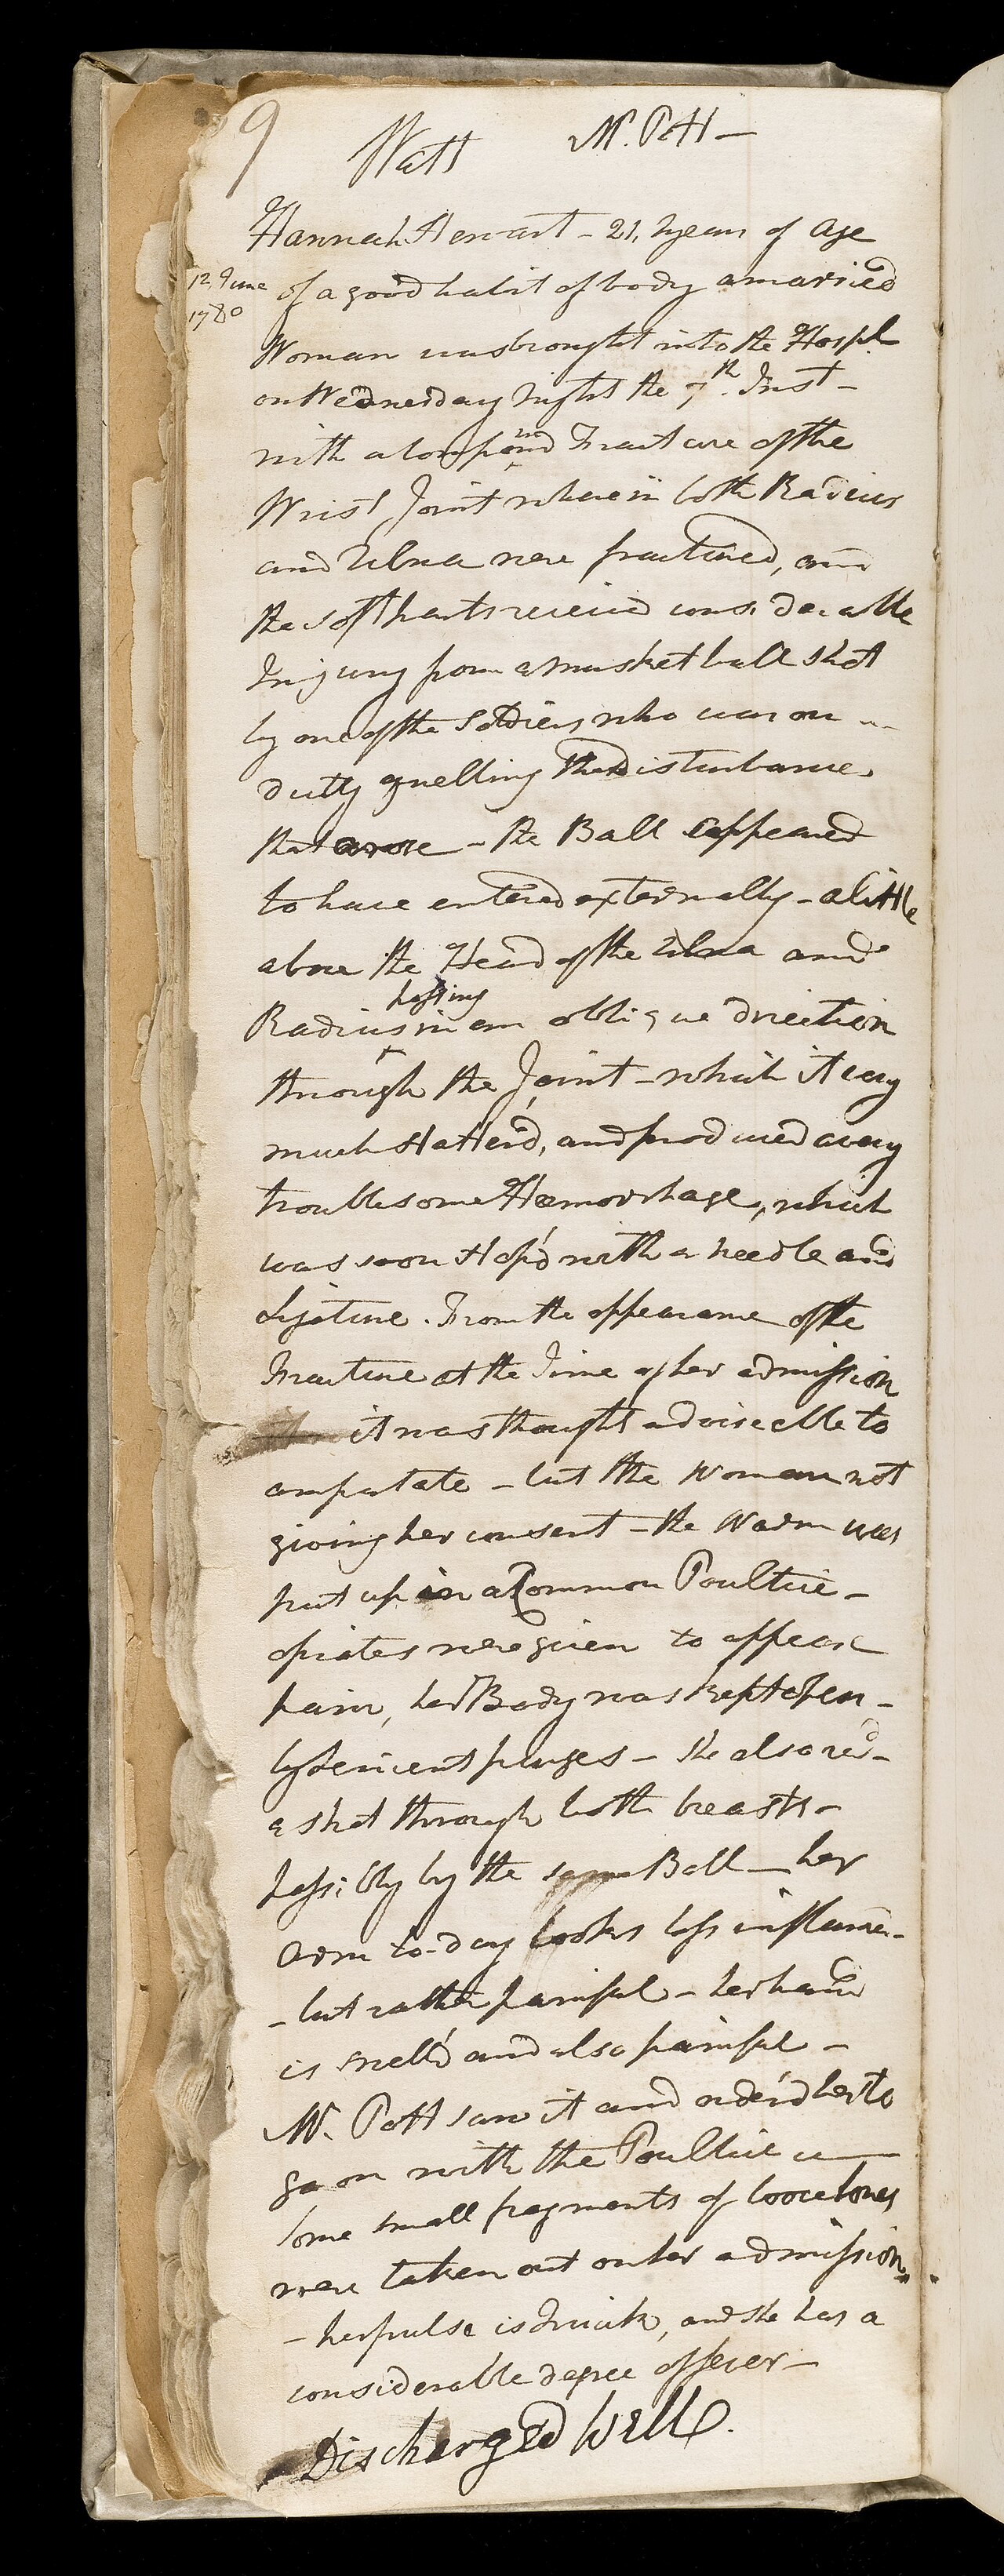 9
Watts Mr. Pott —
Hannah Stewart - 21, years of Age
12 June 1780
of a good habit of body a married
Woman was brought into the Hospl
on Wednesday Night the 7th. Inst -
with a Compound Fracture of the
Wrist Joint wherein both Radius
and Ulna were fractured, and
the soft parts receiv'd considerable
Injury from a musket ball shot
by one of the Soldiers who was on
duty quelling the disturbance
that arose - the Ball appeared
to have entered externally - a little
above the Head of the Ulna and
Radius passing in an oblique direction
through the Joint - which it very
much shatter'd, and produced a very
troublesome Hæmorrhage, which
was soon stop'd with a needle and
Ligature. From the appearance of the
Fracture at the Time of her admission
it was thought adviseable to
amputate - but the Woman not
giving her consent - the Warm was
put up in a Common Poultice -
opiates were given to appease
pain, her Body was kept open -
by Lenient purges - she also recd -
a shot through both breasts -
possibly by the same Ball — her
Arm to-day looks less inflam'd -
- but rather painful - her hand
is swell'd and also painful -
Mr. Pott saw it and order'd her to
go on with the Poultice
some small fragments of loose bones
were taken out on her admission
- her pulse is Quick, and she has a
considerable degree of fever -
Discharged Well.